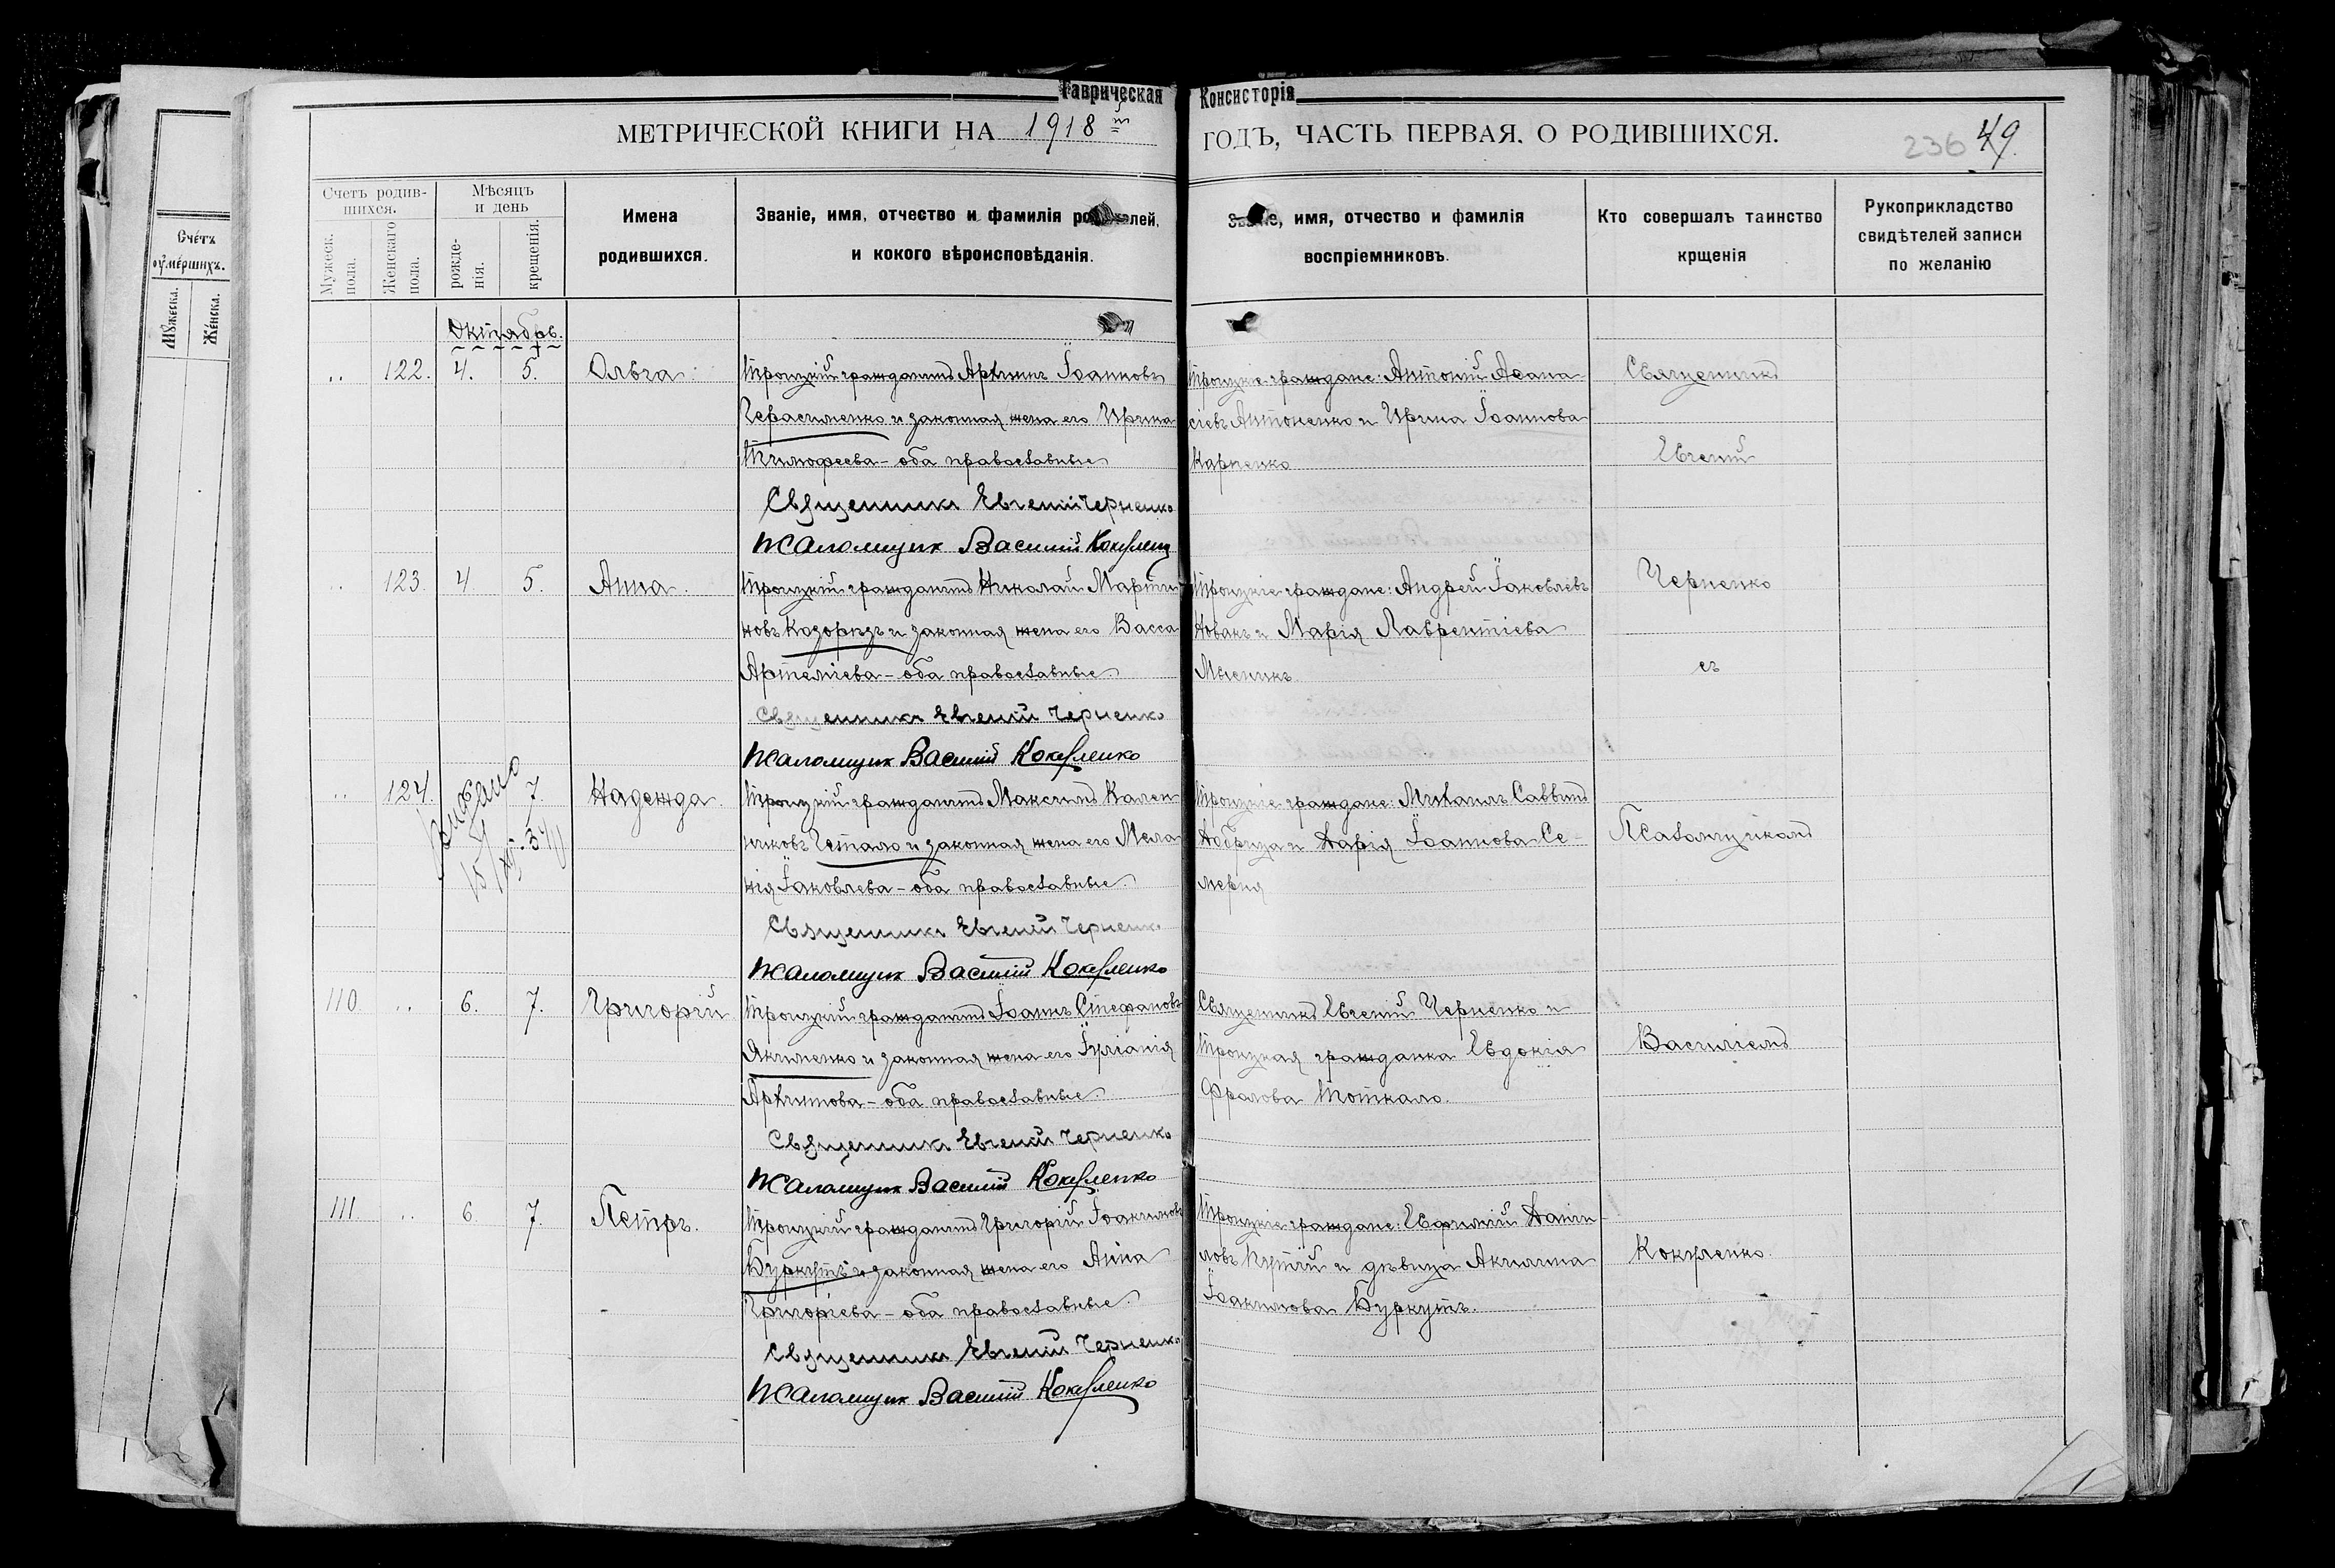 Таврическая Консисторія
МЕТРИЧЕСКОЙ КНИГИ НА 1918 й ГОДЪ, ЧАСТЬ ПЕРВАЯ. О РОДИВШИХСЯ.
236 49.
Счетъ
умершихъ.
Мужеска.
Женска.
Счетъ родив-
шихся.
Мужеск.
пола.
Женскаго
пола.
Мѣсяцъ
и день
рожде-
нія.
крещенія.
Имена
родившихся.
Званіе, имя, отчество и фамилія родителей,
и кокого вѣроисповѣданія.
Званіе, имя, отчество и фамилія
воспріемниковъ.
Кто совершалъ таинство
крщенія
Рукоприкладство
свидѣтелей записи
по желанію
Октябрь.
122. 4. 5. Ольга.
Троицкій гражданинъ Архипъ Іоанновъ
Герасименко и законная жена его Ирина
Тимофеева – оба православные
Священникъ Евгеній Черненко
Псаломщик Василій
Троицкіе граждане: Антоній Афана-
сіевъ Антоненко и Ирина Іоаннова
Карпенко
Священникъ
Евгеній
Черненко
съ
Псаломщикомъ
Василіемъ
123. 4. 5. Анна.
Троицкій гражданинъ Николай Марти-
новъ Козоризъ и законная жена его Васса
Артеміева – оба православные.
Священникъ Евгеній Черненко
Псаломщик Василій
Троицкіе граждане: Андрей Іаковлевъ
Новакъ и Марія Лаврентіева
124. 7. Надежда.
Троицкій гражданинъ Максимъ Кален-
никовъ и законная жена его Мела-
нія Іаковлева – оба православные.
Священникъ Евгеній Черненко
Псаломщик Василій
Троицкіе граждане: Михаилъ Саввинъ
и Дарія Іоаннова Се-
110 6. 7. Григорій
Троицкій гражданинъ Іоаннъ Стефановъ
Якименко и законная жена его Іуліанія
Архипова – оба православные.
Священникъ Евгеній Черненко
Псаломщик Василій
Священникъ Евгеній Черненко и
Троицкая гражданка Евдокія
Фролова
111 6 7. Петръ.
Троицкій гражданинъ Григорій Іоакимовъ
Буркутъ и законная жена его Анна
Григоріева – оба православные.
Священникъ Евгеній Черненко
Псаломщик Василій
Троицкіе граждане: Евфимій Даніи-
ловъ Кутій и дѣвица Акилина
Іоакимова Буркутъ.